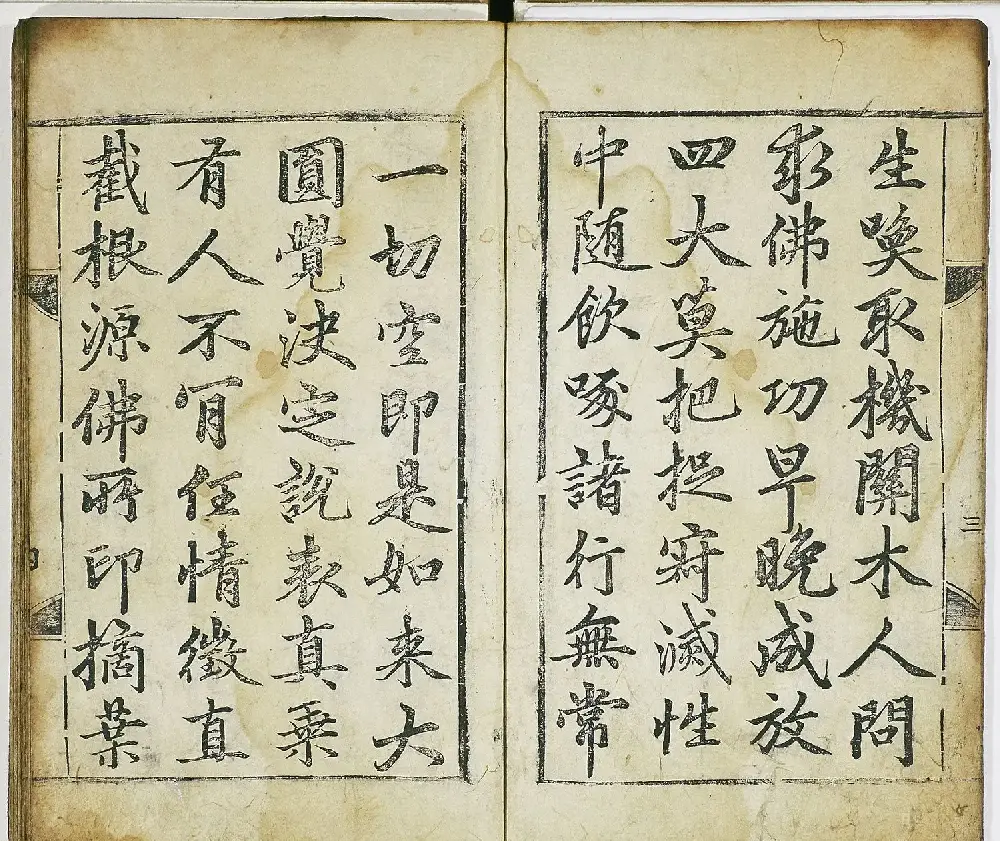 生喚取機關木人問
求佛施功早晚成放
四大莫把捉寂滅性
中随飲啄諸行無常
一切空即是如来大
圓覺决定說表真乗
有人不肎任情徵直
截根源佛所印摘葉
三
四